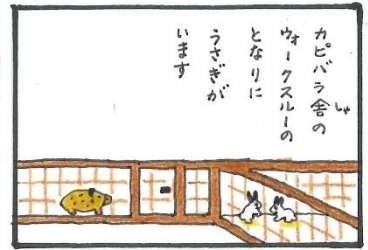 カピバラ舎しゃの
ウォークスルーの
となりに
うさぎが
います